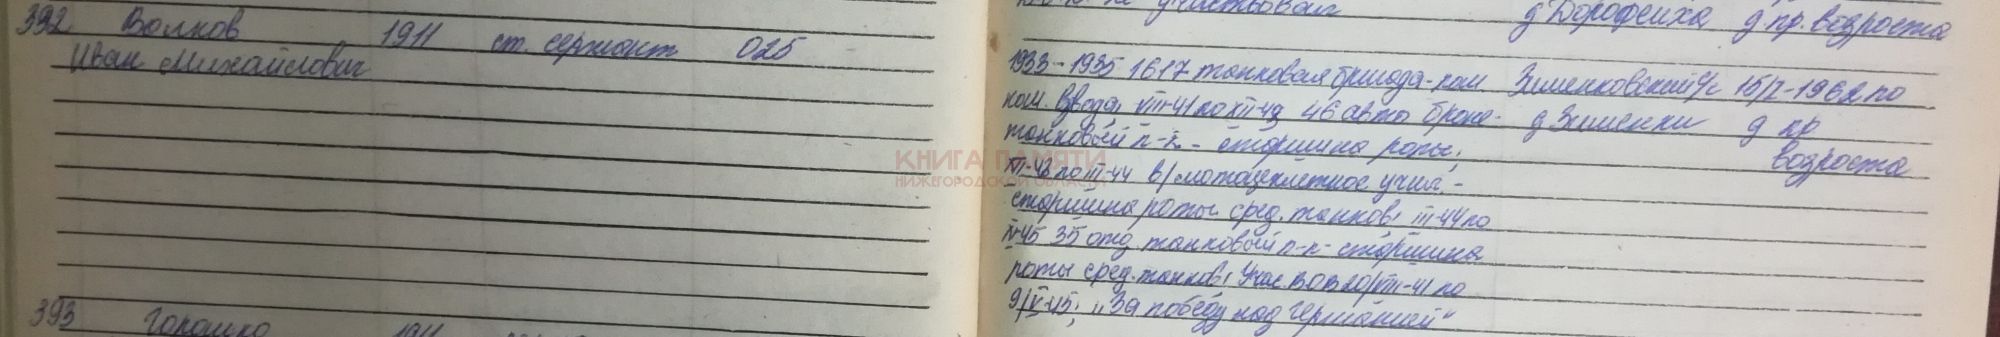 392 Волков 1911 ст. сержант 025
Иван Михайлович
участвовал д Дорофеиха д пр. возроста
1933-1935 1617 танковая бригада - ком. Зименковский с/с 15/X-1962 по
ком. взвода; VIII-41 по XII-43 46 авто броне- д Зименки д пр
танковый п-к - старшина роты; возроста
XII-43 по III-44 в/мотоциклетное учил. -
старшина роты сред. танков; III-44 по
V-45 35 отд танковый п-к - старшина
роты сред. танков; Учас. ВОВ 20/VIII-41 по
9/V-45; "За победу над Германией"
КНИГА ПАМЯТИ
НИЖЕГОРОДСКОЙ ОБЛАСТИ
393 1911